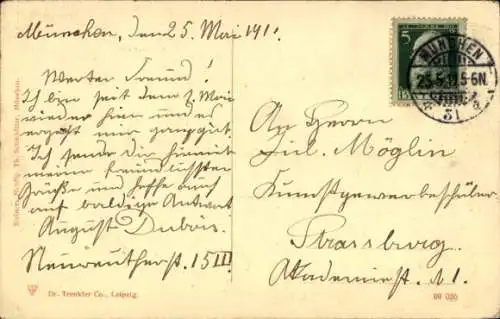 München, den 25. Mai 1911
Werter Freund!
Ich bin seit dem 2. Mai
wieder hier und es
geht mir ganz gut.
Ich sende Dir hiermit
meine freundlichsten
Grüße und hoffe auch
auf baldige Antwort
August Dubois.
Neureutherst. 15 III
An Herrn
Jul. Möglin
Kunstgewerbeschüler
Strassburg.
Akademiest. 1
5
MÜNCHEN
31
Dr. Trenkler Co., Leipzig.